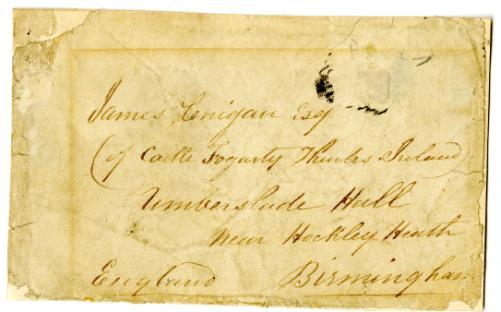 James Lenigan Esq
(of Castle Fogarty Thurles Ireland)
Umberslade Hall
near Hockley Heath
England Birmingham